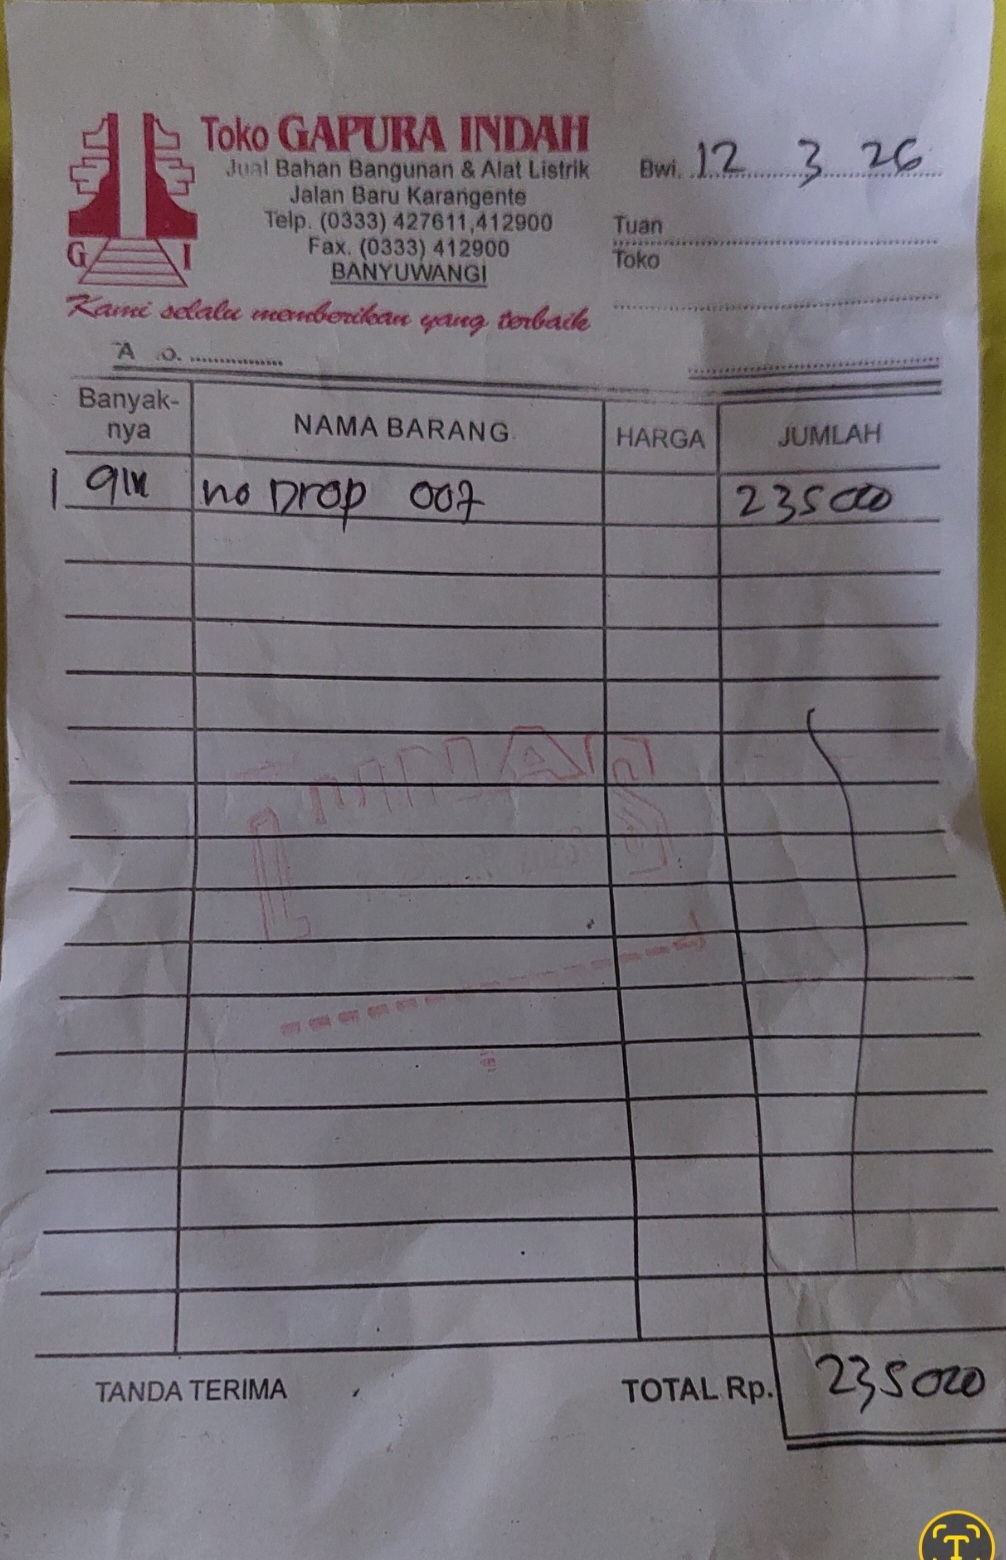 Toko GAPURA INDAH
Jual Bahan Bangunan & Alat Listrik
Jalan Baru Karangente
Telp. (0333) 427611,412900
Fax. (0333) 412900
BANYUWANGI
G I
Kami selalu memberikan yang terbaik
Bwi. 12 3 26
Tuan
Toko
Banyak-nya NAMA BARANG HARGA JUMLAH
1 no Drop 007 235000
LUNAS
TANDA TERIMA TOTAL Rp. 235000